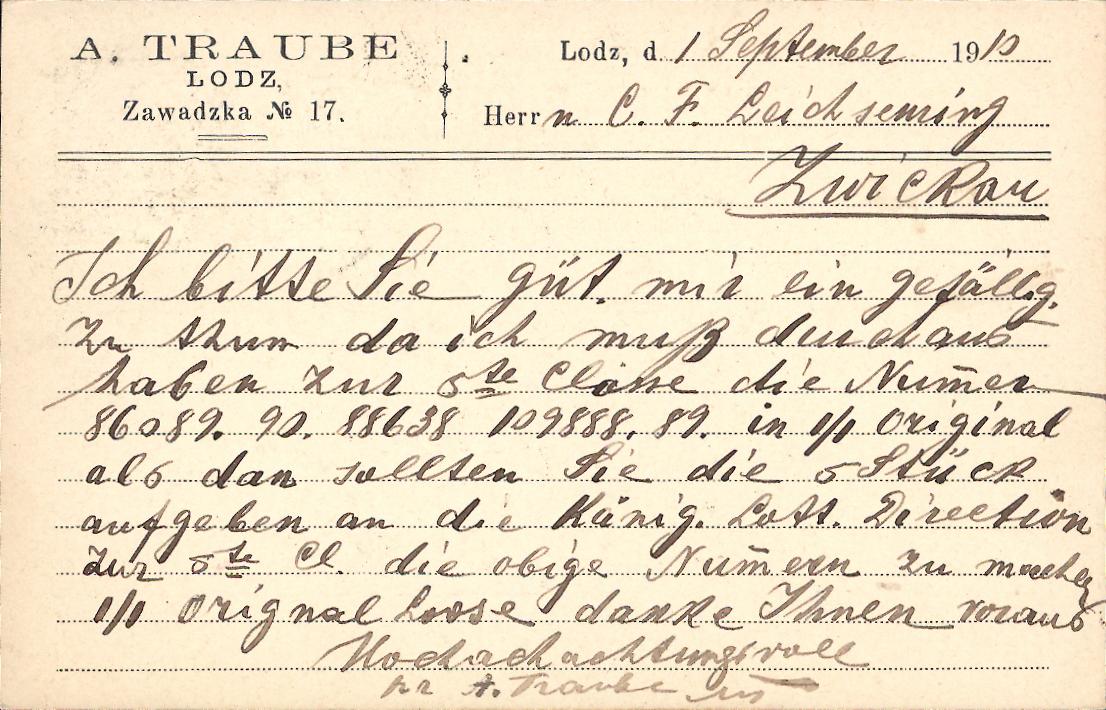 A. TRAUBE
LODZ,
Zawadzka № 17.
Lodz, d. 1 September 1910
Herrn C. F. Leichsenring
Zwickau
Ich bitte Sie güt. mir ein gefällig.
zu thun da ich muß durchaus
haben zur 5te Classe die Num̅er
86089. 90. 88638 109888. 89. in 1/1 Original
als dan sollten Sie die 5 Stück
aufgeben an die König. Lott. Direction
zur 5te Cl. die obige Num̅ern zu machen
1/1 Orignal Loose danke Ihnen voraus
Hochachachtungsvoll
pr A. Traube